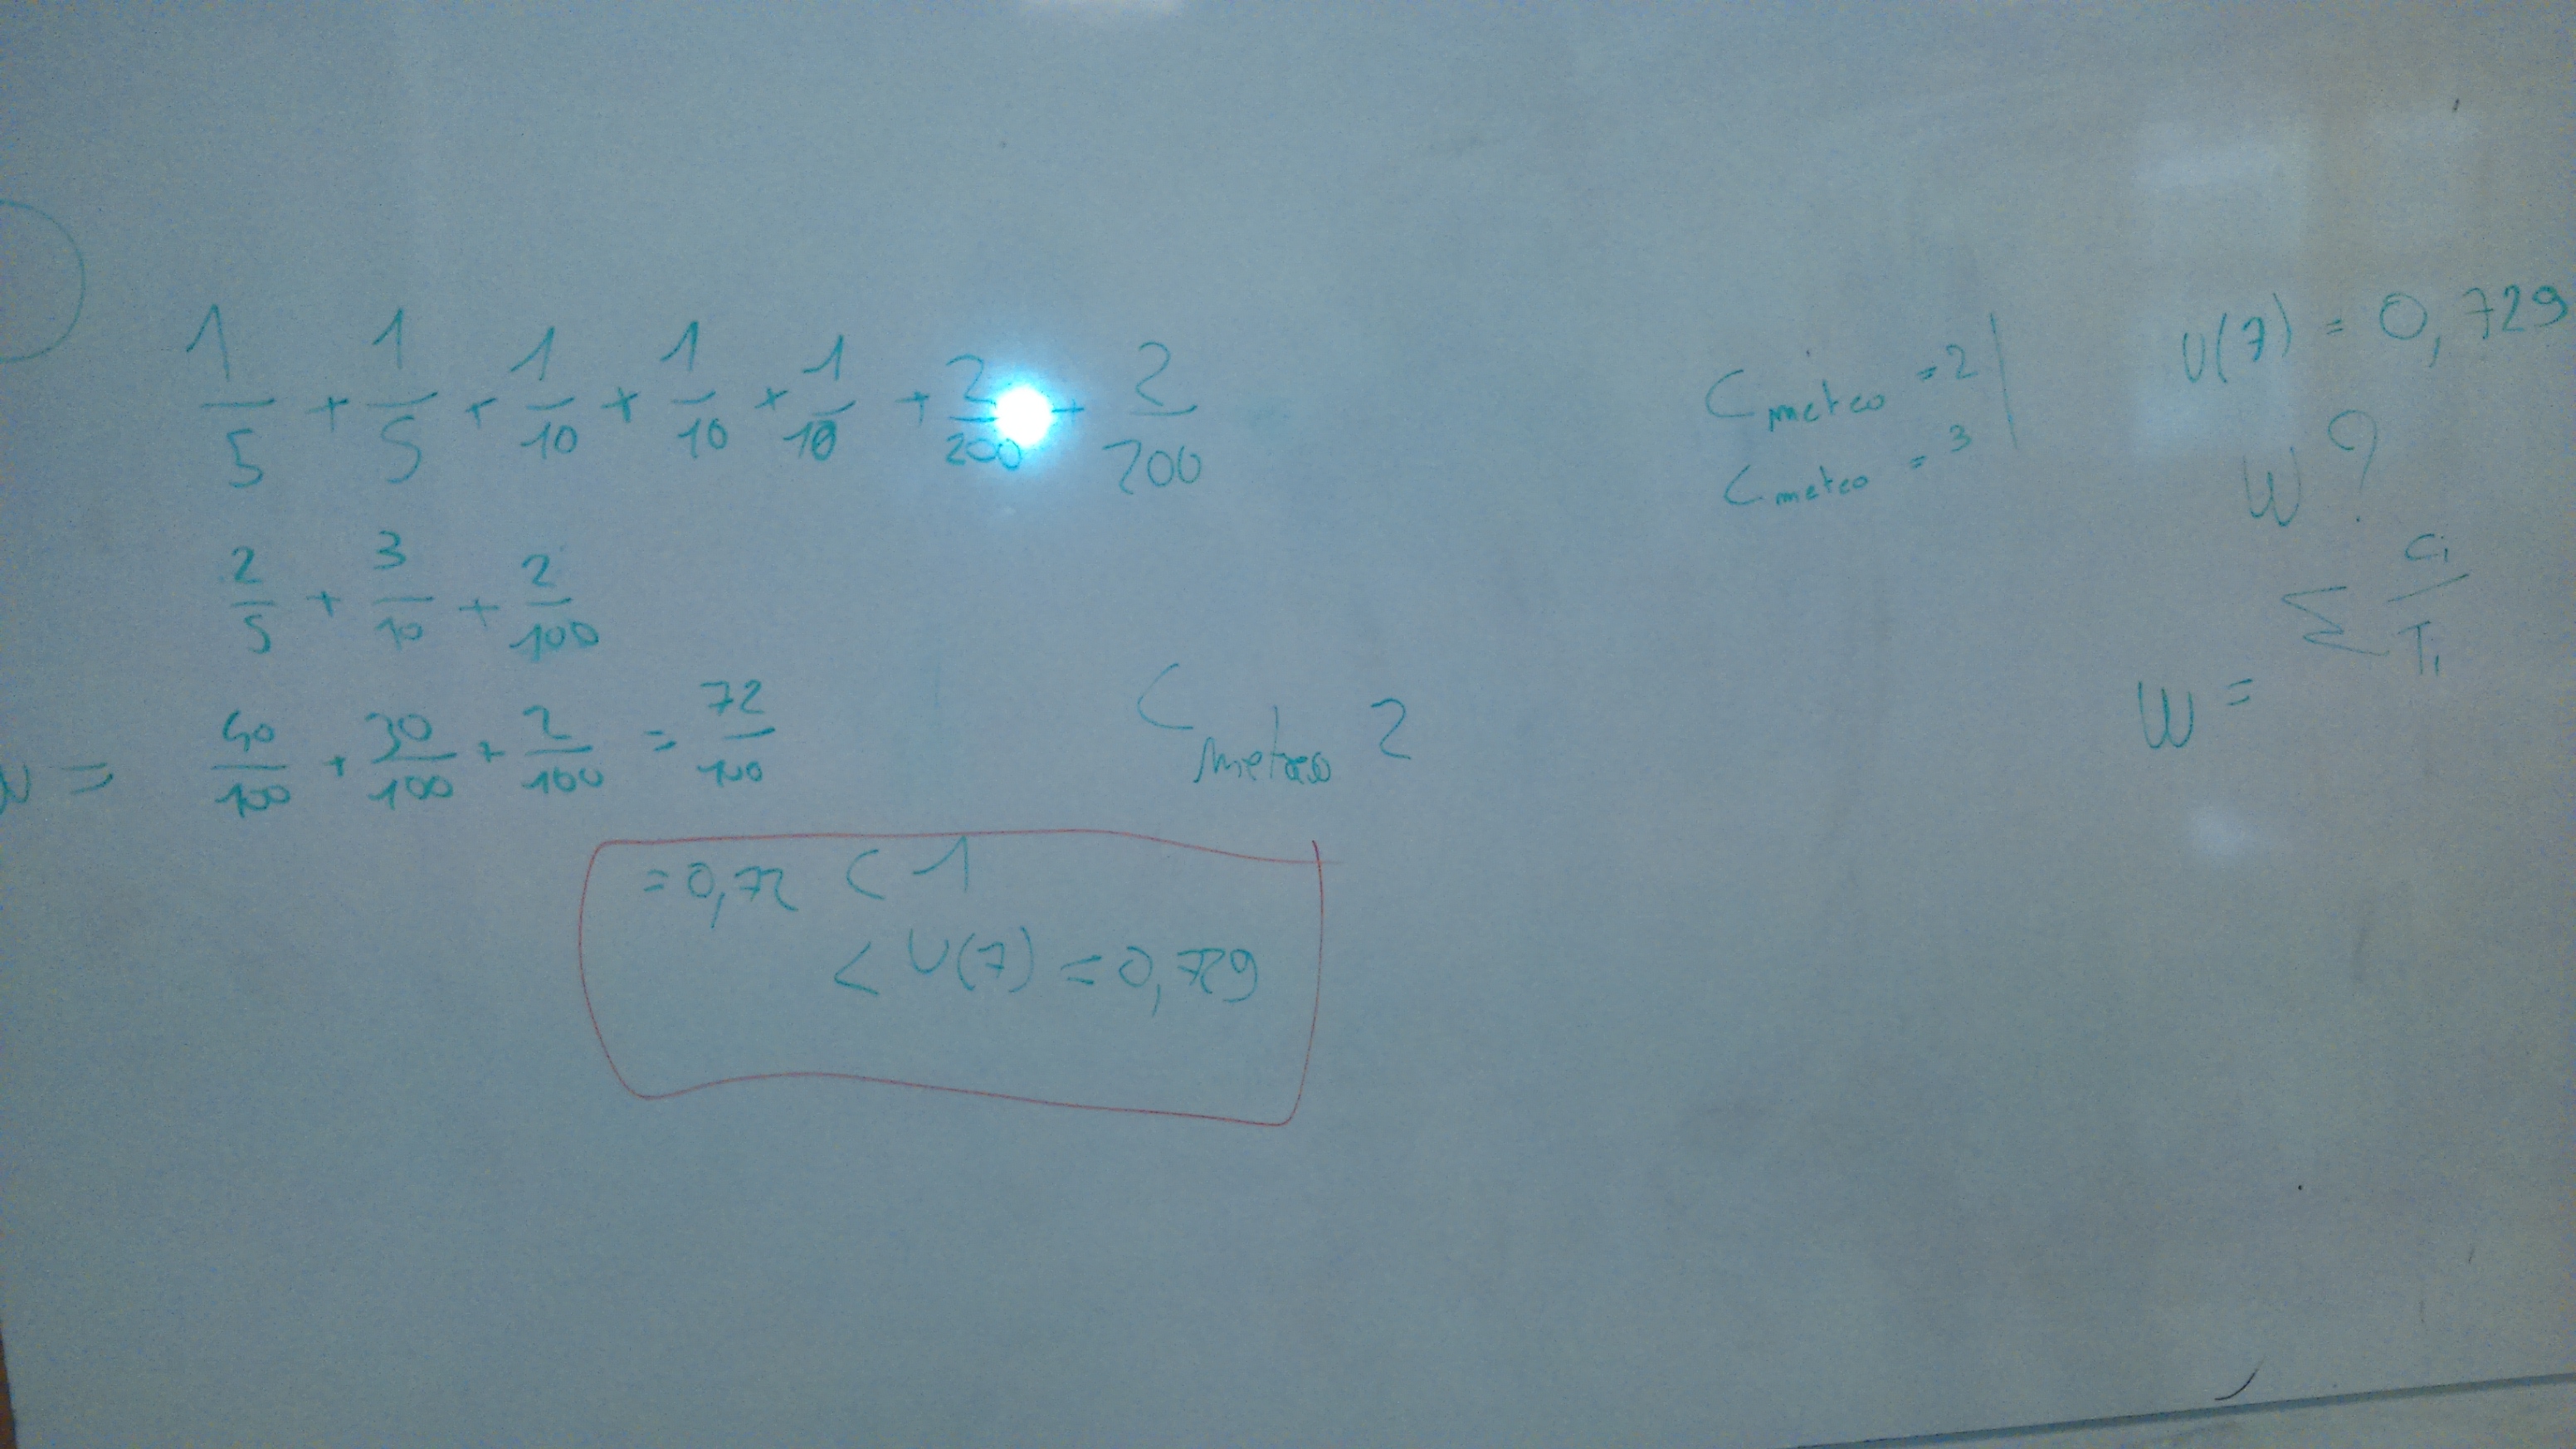 1/5 + 1/5 + 1/10 + 1/10 + 1/10 + 2/200 + 2/200
2/5 + 3/10 + 2/100
W = 40/100 + 30/100 + 2/100 = 72/100
C meteo 2
= 0,72 < 1
< U(7) = 0,729
C meteo = 2
C meteo = 3
U(7) = 0,729
W ?
W = Σ Ci/Ti